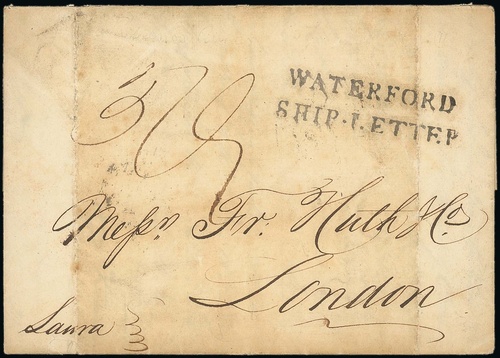 WATERFORD
SHIP-LETTER
Messrs Fr. Huth & Co
London
Laura